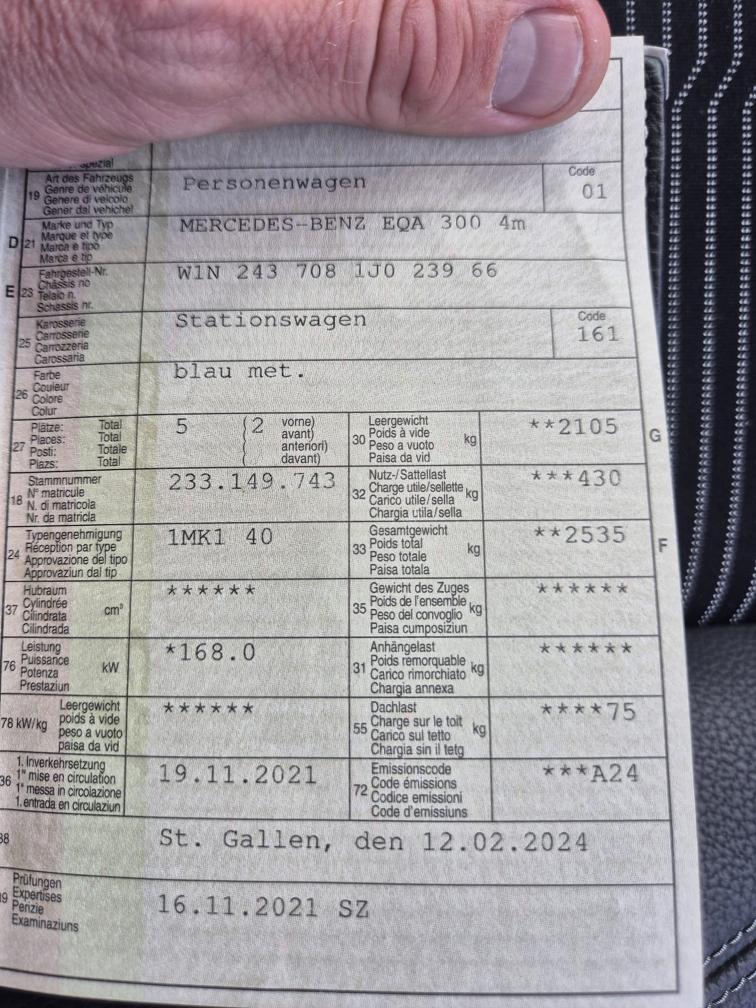 spezial
19 Art des Fahrzeugs
Genre de véhicule
Genere di veicolo
Gener dal vehichel
Personenwagen
Code
01
D 21 Marke und Typ
Marque et type
Marca e tipo
Marca e tip
MERCEDES-BENZ EQA 300 4m
E 23 Fahrgestell-Nr.
Châssis no
Telaio n.
Schassis nr.
W1N 243 708 1J0 239 66
25 Karosserie
Carrosserie
Carrozzeria
Carossaria
Stationswagen
Code
161
26 Farbe
Couleur
Colore
Colur
blau met.
27 Plätze: Total
Places: Total
Posti: Totale
Plazs: Total
5 (2 vorne)
avant)
anteriori)
davant)
30 Leergewicht
Poids à vide
Peso a vuoto
Paisa da vid
kg
**2105
G
18 Stammnummer
N° matricule
N. di matricola
Nr. da matricla
233.149.743
32 Nutz-/Sattellast
Charge utile/sellette
Carico utile/sella
Chargia utila/sella
kg
***430
24 Typengenehmigung
Réception par type
Approvazione del tipo
Approvaziun dal tip
1MK1 40
33 Gesamtgewicht
Poids total
Peso totale
Paisa totala
kg
**2535
F
37 Hubraum
Cylindrée
Cilindrata
Cilindrada
cm³
******
35 Gewicht des Zuges
Poids de l'ensemble
Peso del convoglio
Paisa cumposiziun
kg
******
76 Leistung
Puissance
Potenza
Prestaziun
kW
*168.0
31 Anhängelast
Poids remorquable
Carico rimorchiato
Chargia annexa
kg
******
78 kW/kg Leergewicht
poids à vide
peso a vuoto
paisa da vid
******
55 Dachlast
Charge sur le toit
Carico sul tetto
Chargia sin il tetg
kg
****75
36 1. Inverkehrsetzung
1re mise en circulation
1a messa in circolazione
1. entrada en circulaziun
19.11.2021
72 Emissionscode
Code émissions
Codice emissioni
Code d'emissiuns
***A24
38
St. Gallen, den 12.02.2024
39 Prüfungen
Expertises
Perizie
Examinaziuns
16.11.2021 SZ